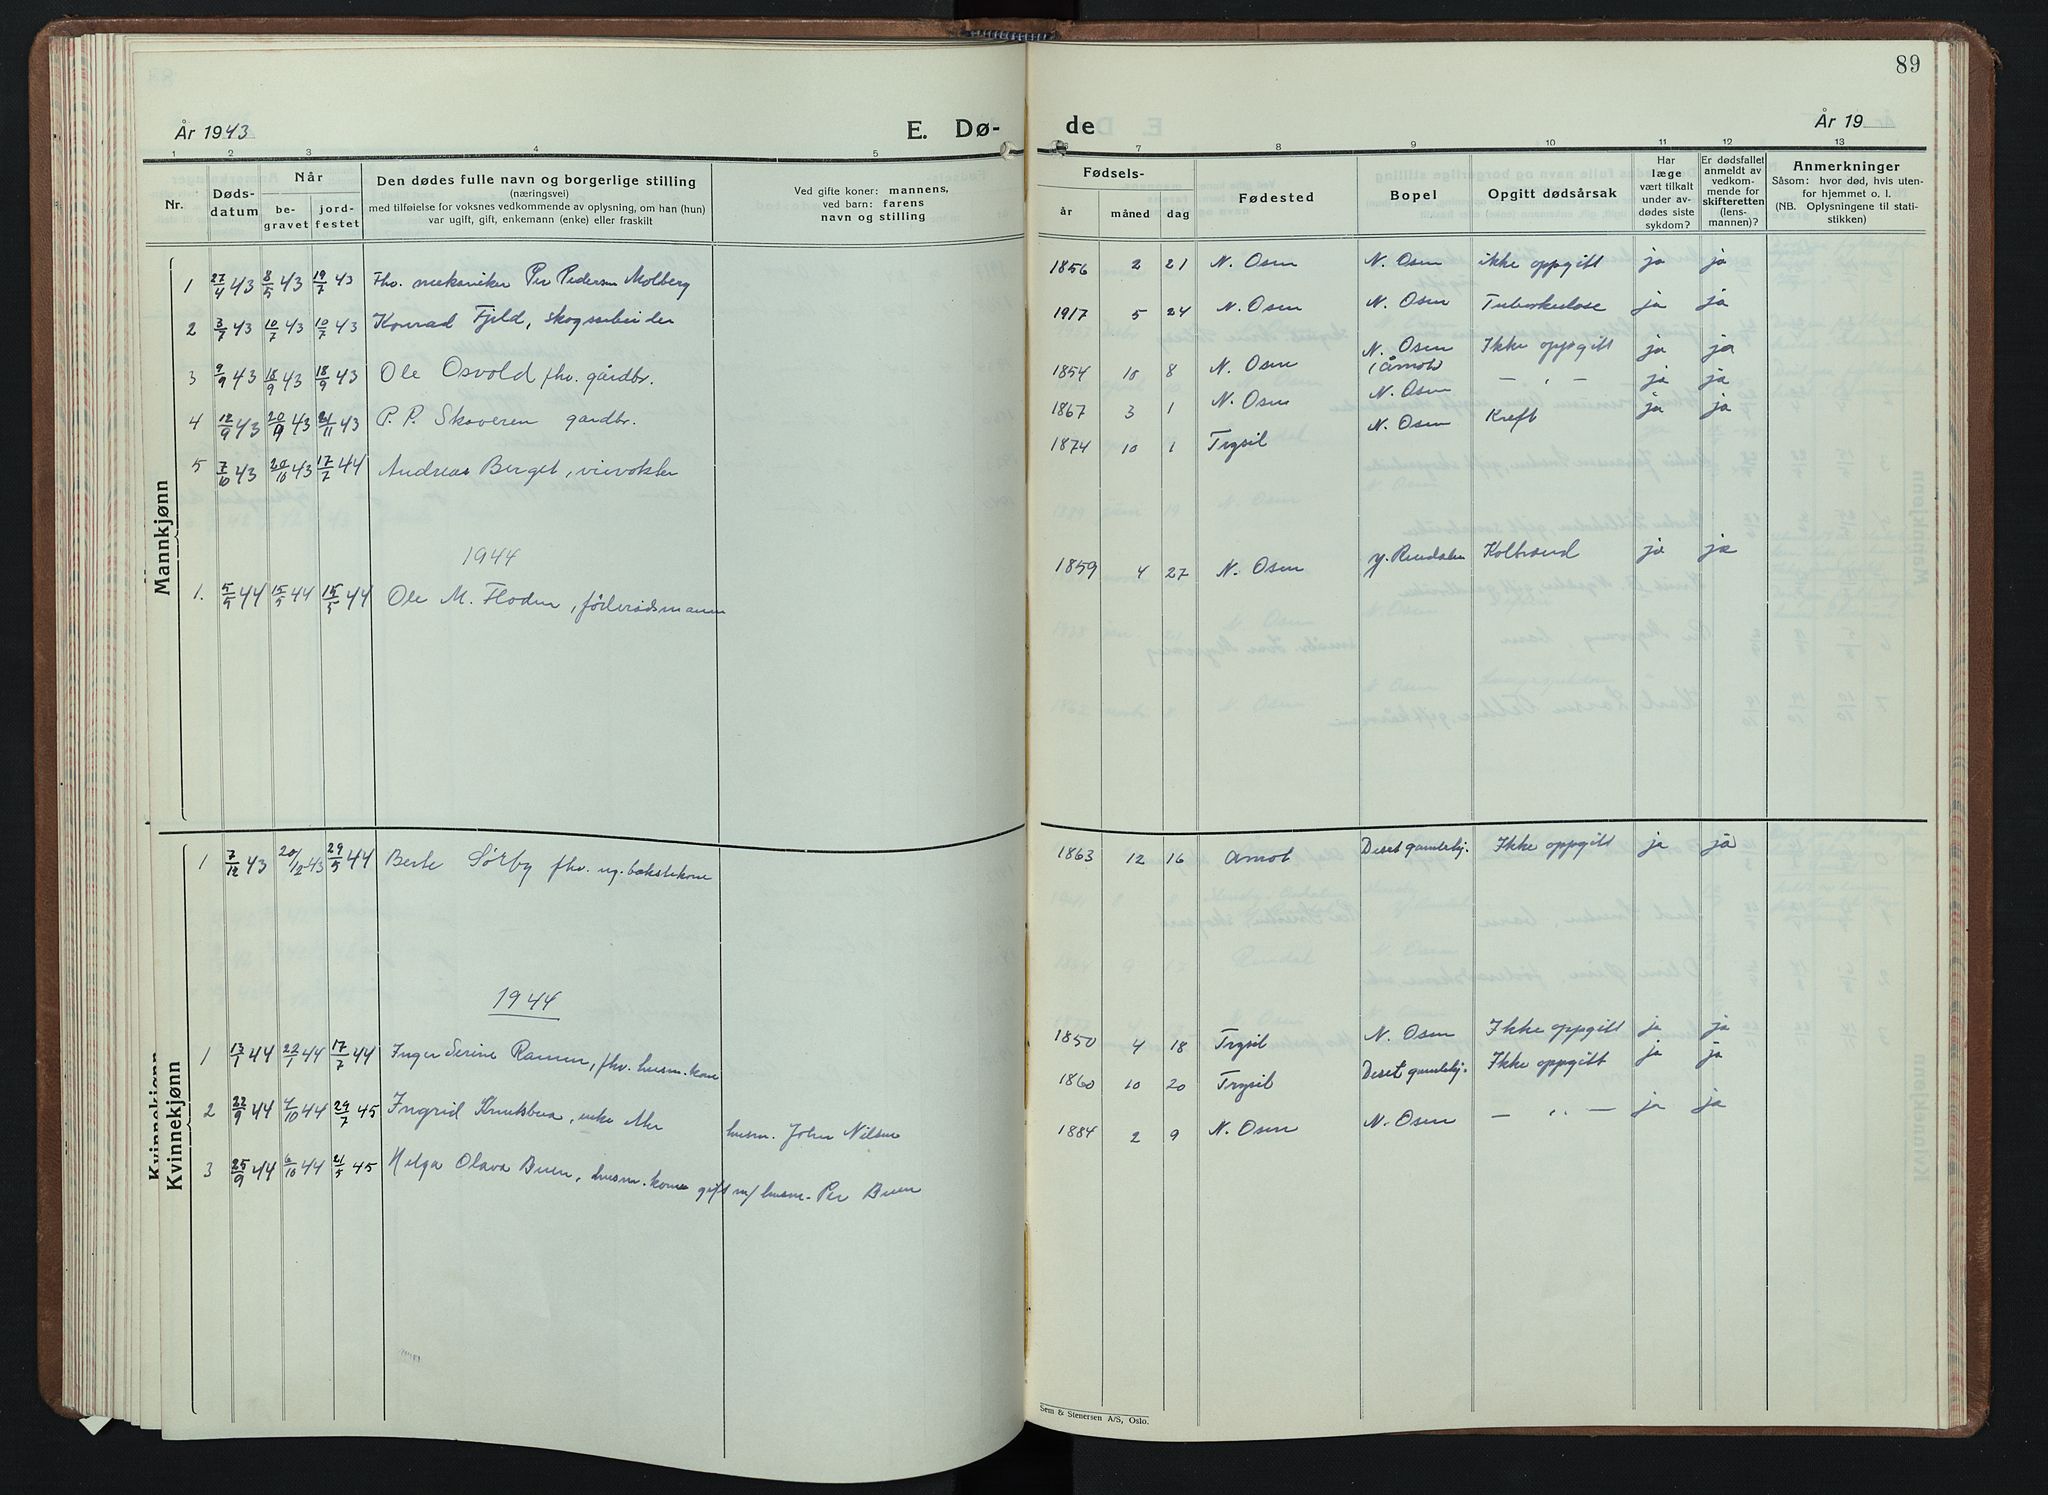 89
År 1943
E. Dø-
de
År 19
1 2 3 4 5
6 7 8 9 10 11 12 13
Nr.
Døds-
datum
Når
be-
gravet
jord-
festet
Den dødes fulle navn og borgerlige stilling
(næringsvei)
med tilføielse for voksnes vedkommende av oplysning, om han (hun)
var ugift, gift, enkemann (enke) eller fraskilt
Ved gifte koner: mannens,
ved barn: farens
navn og stilling
Fødsels-
år
måned
dag
Fødested
Bopel
Opgitt dødsårsak
Har
læge
vært tilkalt
under av-
dødes siste
sykdom?
Er dødsfallet
anmeldt av
vedkom-
mende for
skifteretten
(lens-
mannen)?
Anmerkninger
Såsom: hvor død, hvis uten-
for hjemmet o. l.
(NB. Oplysningene til stati-
stikken)
Mannkjønn
1 27/4 43 8/5 43 19/7 43 Fhv. mekaniker Per Pedersen Molberg 1856 2 21 N. Osen N. Osen ikke oppgitt ja ja
2 3/7 43 10/7 43 10/7 43 Konrad Fjeld, skogsarbeider 1917 5 24 N. Osen N. Osen Tuberkulose ja ja
3 9/9 43 18/9 43 18/9 43 Ole Osvold fhv. gårdbr. 1854 10 8 N. Osen N. Osen (Åmot) Ikke oppgitt ja ja
4 12/9 43 20/9 43 21/11 43 P. P. Skaveren gardbr. 1867 3 1 N. Osen N. Osen — „ — ja ja
5 7/10 43 20/10 43 17/7 44 Andreas Berget, veivokter 1874 10 1 Trysil N. Osen Kreft ja ja
1944
1. 5/5 44 15/5 44 15/5 44 Ole M. Floden, føderådsmann 1859 4 27 N. Osen Y. Rendalen Kolbrand ja ja
Kvinnekjønn
Kvinnekjønn
1 7/12 43 20/12 43 29/5 44 Berte Sørby fhv. ug. bakstekone 1863 12 16 Åmot Deset gamlehj. Ikke oppgitt ja ja
1944
1 13/1 44 22/1 44 17/7 44 Inger Serine Ramen, fhv. husm. kone 1850 4 18 Trysil N. Osen Ikke oppgitt ja ja
2 22/9 44 4/10 44 29/7 45 Ingrid Knutsbua, enke etter husm. John Nilsen 1860 10 20 Trysil Deset gamlehj. Ikke oppgitt ja ja
3 25/9 44 6/10 44 21/5 45 Helga Olava Buen, husm. kone gift m/ husm. Per Buen 1884 2 9 N. Osen N. Osen — „ — ja ja
Sem & Stenersen A/S, Oslo.